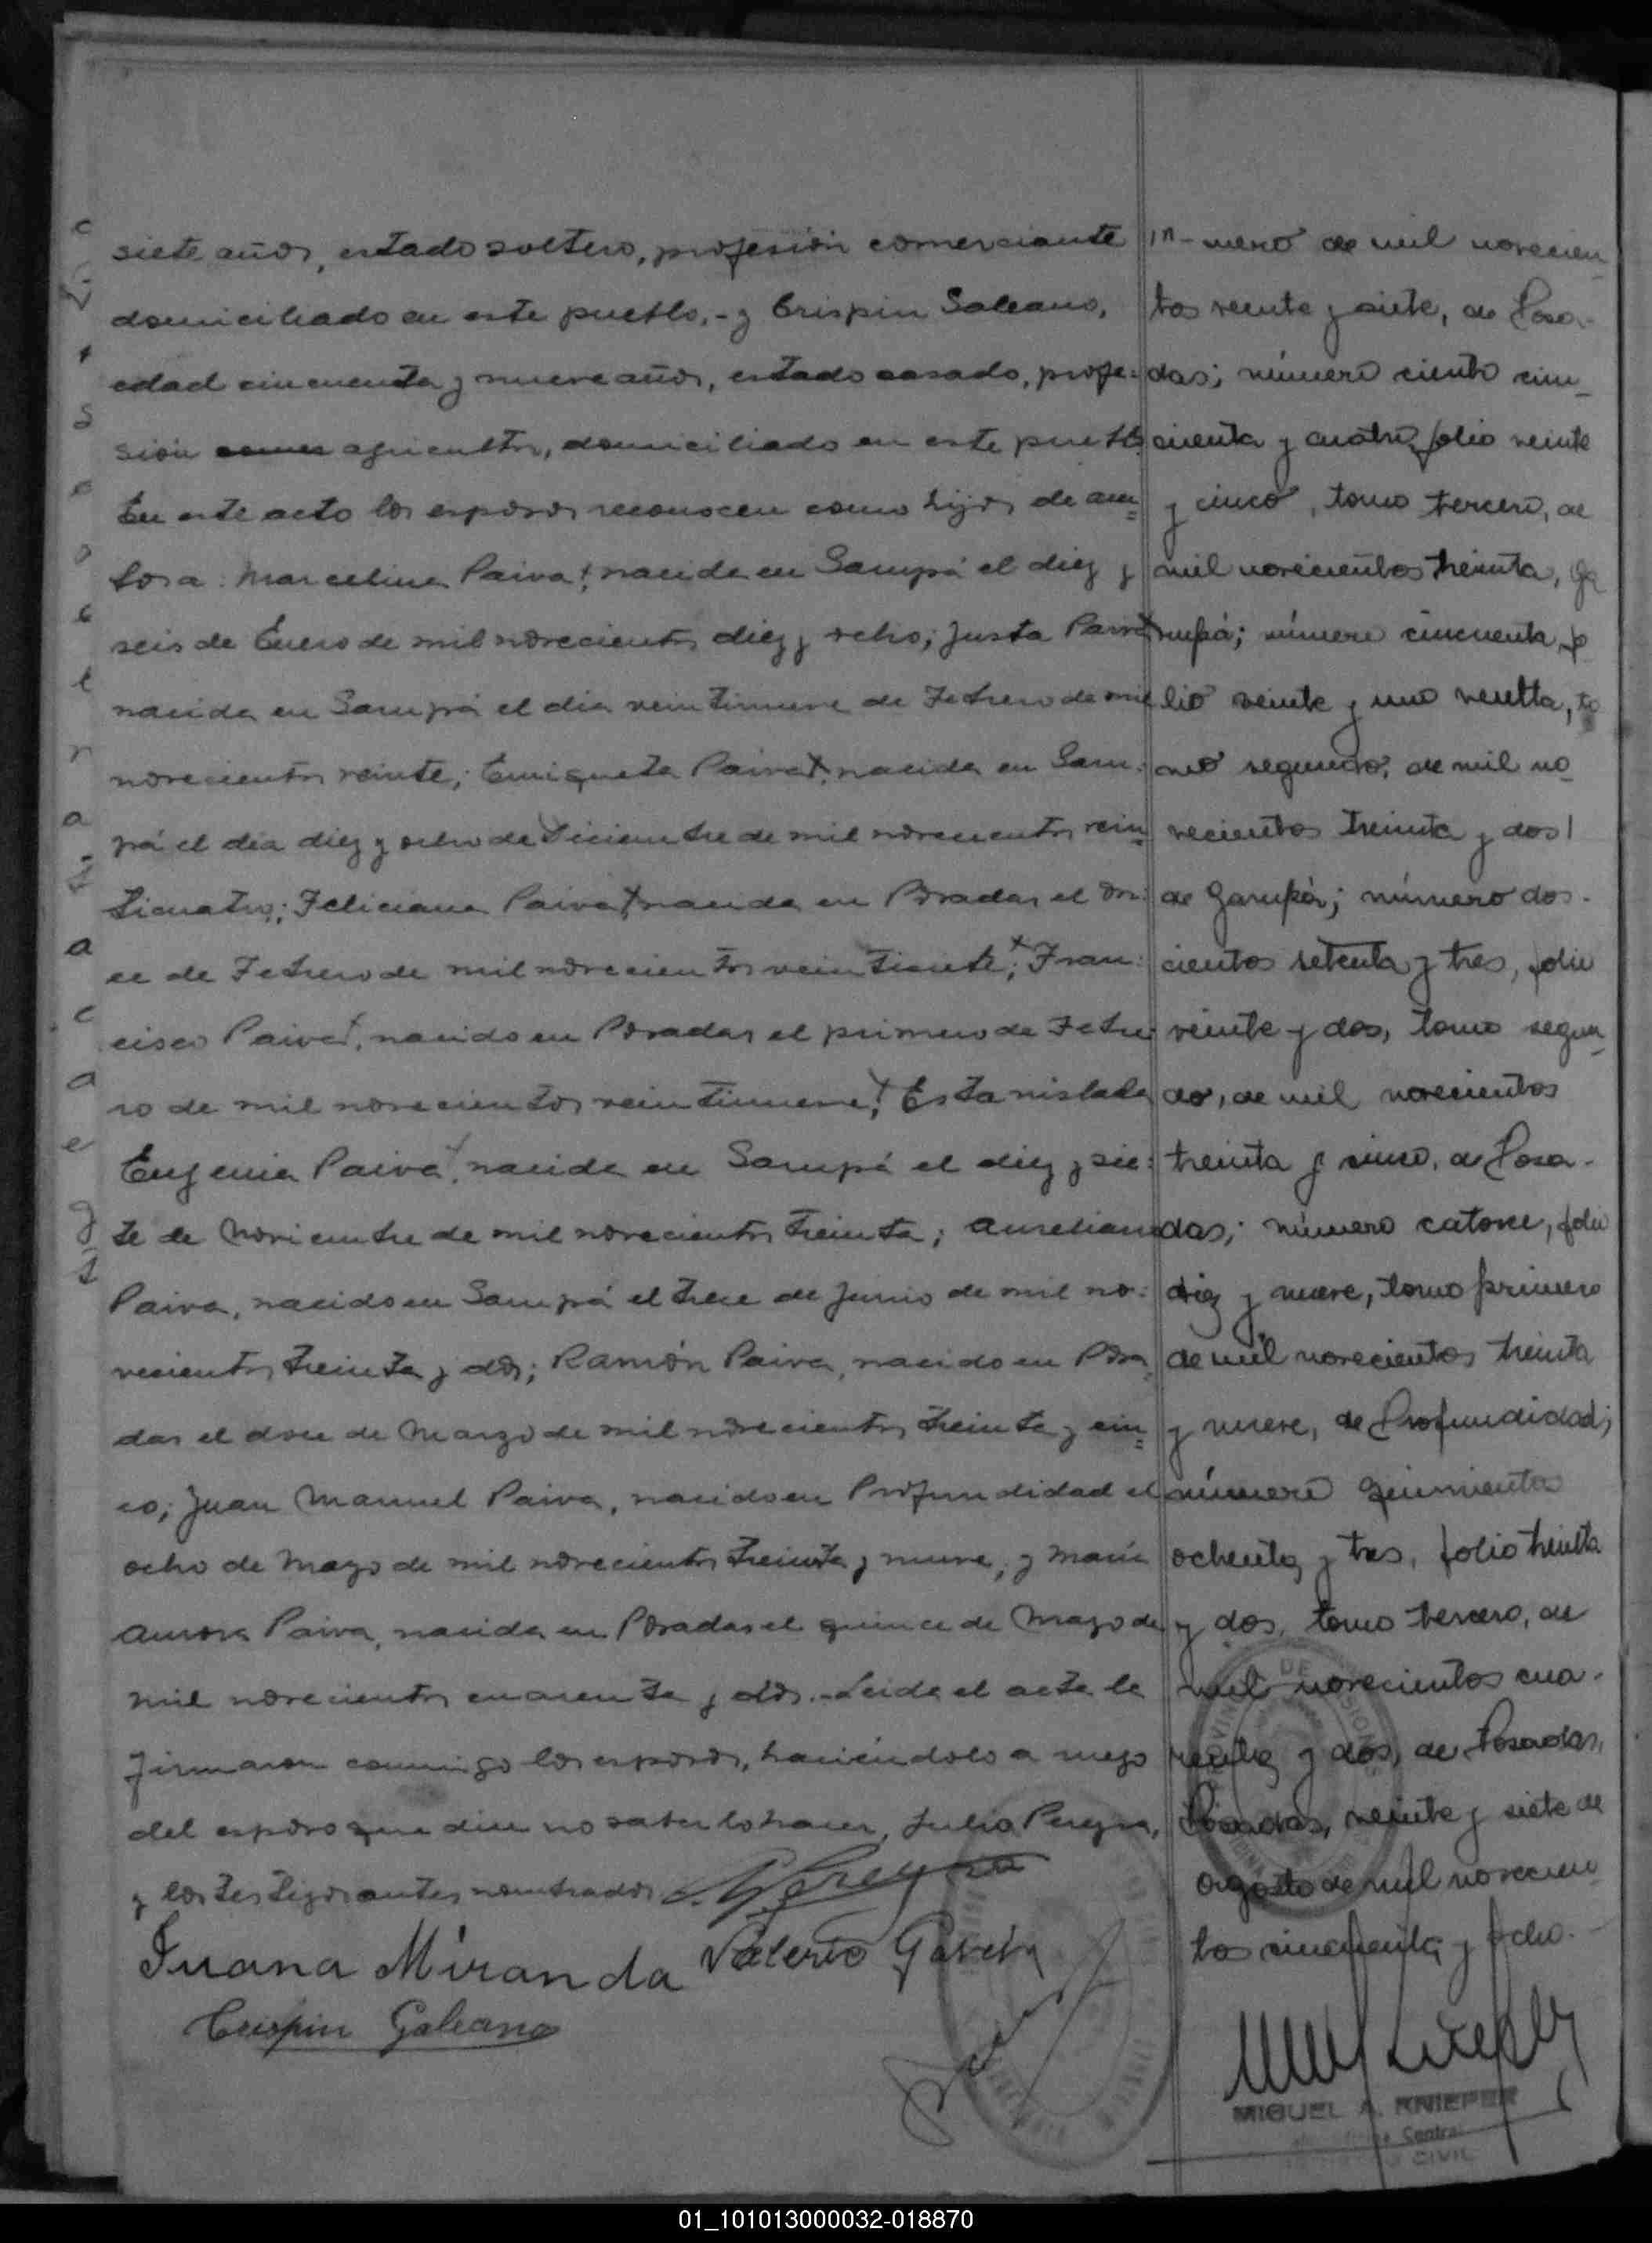 siete años, estado soltero, profesión comerciante
domiciliado en este pueblo,- y Crispin Galeano,
edad cincuenta y nueve años, estado casado, profe=
sión agricultor, domiciliado en este pueblo.
En este acto los esposos reconocen como hijos de am=
bos a: Marcelina Paiva, nacida en Garupá el diez y
seis de Enero de mil novecientos diez y ocho; Justa Paiva
nacida en Garupá el dia veintinueve de Febrero de mil
novecientos veinte; Enriqueta Paiva, nacida en Garu=
pá el día diez y ocho de Diciembre de mil novecientos vein=
ticuatro; Feliciana Paiva, nacida en Posadas el on=
ce de Febrero de mil novecientos veintisiete; Fran=
cisco Paiva, nacido en Posadas el primero de Febre=
ro de mil novecientos veintinueve; Estanislada
Eugenia Paiva, nacida en Garupá el diez y sie=
te de Noviembre de mil novecientos treinta; Aureliano
Paiva, nacido en Garupá el trece de Junio de mil no=
vecientos treinta y dos; Ramón Paiva, nacido en Posa=
das el doce de Marzo de mil novecientos treinta y cin=
co; Juan Manuel Paiva, nacido en Profundidad el
ocho de Mayo de mil novecientos treinta y nueve; y María
Aurora Paiva, nacida en Posadas el quince de Mayo de
mil novecientos cuarenta y dos.- Leida el acta la
firmaron conmigo los esposos, haciéndolo a ruego
del esposo que dice no saber lo hacer, Julio Pereyra,
y los testigos antes nombrados
Pereyra
Juana Miranda Valerio García
Crispin Galeano
mero de mil novecien
tos veinte y siete, de Posa-
das; número ciento cin_
cuenta y cuatro, folio veinte
y cinco, tomo tercero, de
mil novecientos treinta, Ga
rupá; número cincuenta, fo
lio veinte y uno vuelta, to
mo segundo, de mil no
vecientos treinta y dos
de Garupá; número dos-
cientos setenta y tres, folio
veinte y dos, tomo segun_
do, de mil novecientos
treinta y cinco, de Posa-
das; número catorce, folio
diez y nueve, tomo primero
de mil novecientos treinta
y nueve, de Profundidad;
número quinientos
ochenta y tres, folio treinta
y dos, tomo tercero, de
mil novecientos cua-
renta y dos, de Posadas.
Posadas, veinte y siete de
agosto de mil novecien
tos cincuenta y ocho.-
MIGUEL A. KNIEPER
Central
CIVIL
01_101013000032-018870